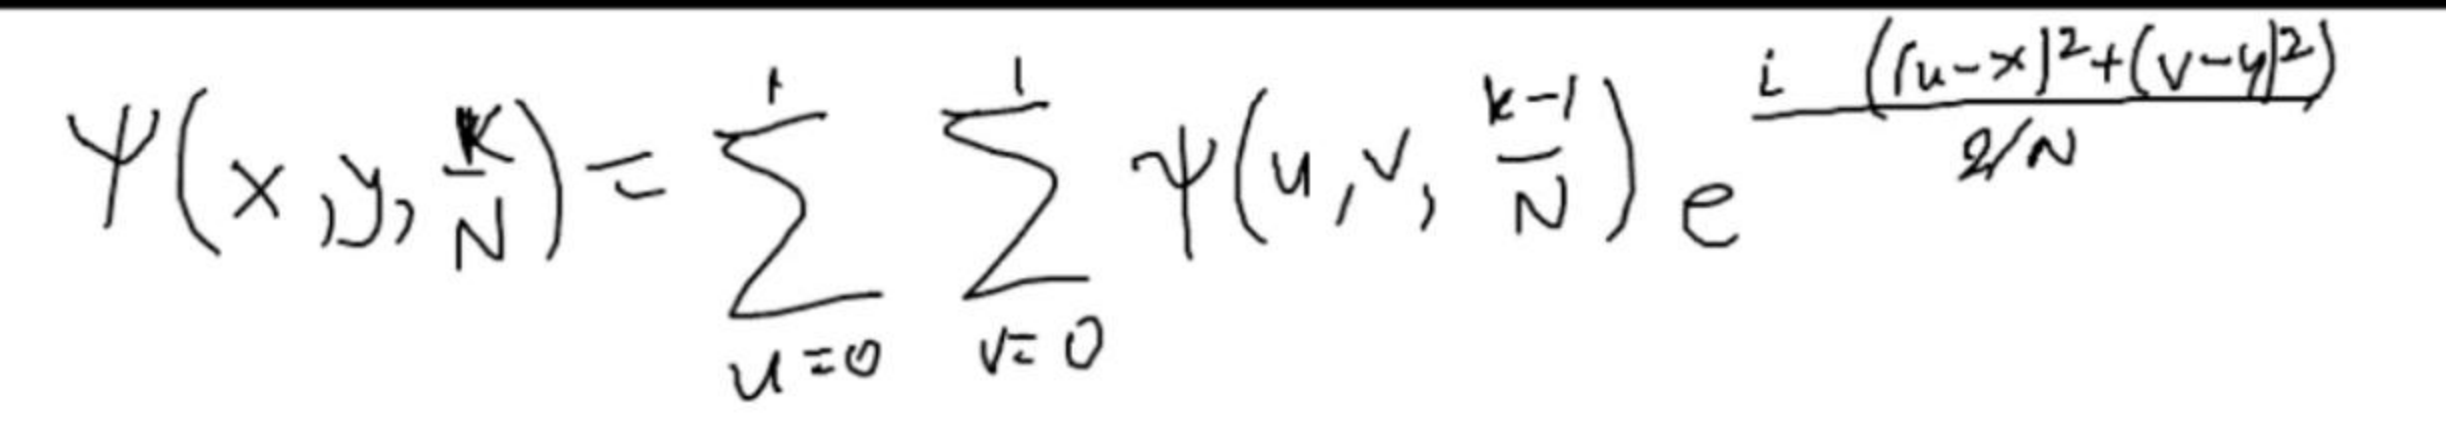 ψ(x,y,k/N) = ∑_{u=0}^{1} ∑_{v=0}^{1} ψ(u,v,(k-1)/N) e^{i((u-x)²+(v-y)²)/(2/N)}